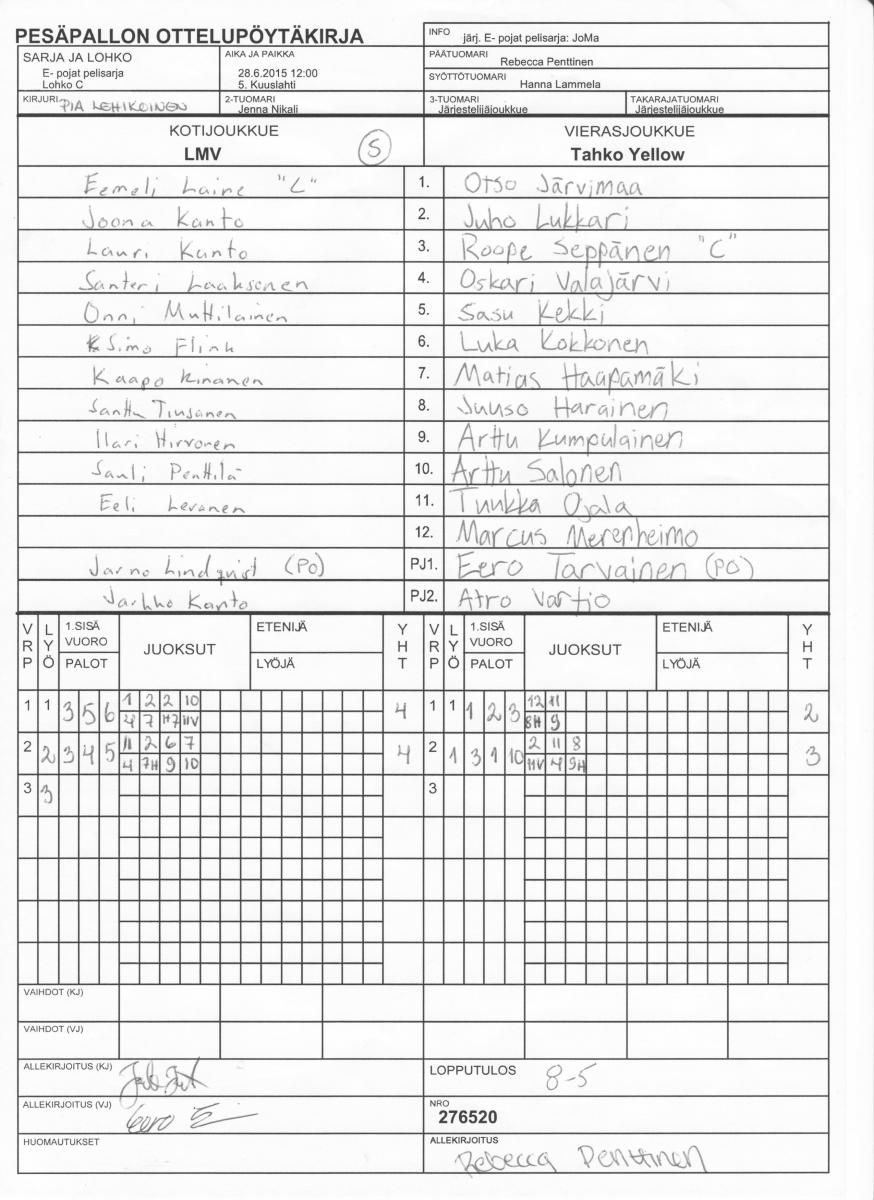 PESÄPALLON OTTELUPÖYTÄKIRJA
INFO järj. E- pojat pelisarja: JoMa
SARJA JA LOHKO
E- pojat pelisarja
Lohko C
AIKA JA PAIKKA
28.6.2015 12:00
5. Kuuslahti
PÄÄTUOMARI Rebecca Penttinen
SYÖTTÖTUOMARI Hanna Lammela
KIRJURI PIA LEHIKOINEN
2-TUOMARI Jenna Nikali
3-TUOMARI Järjestelijäjoukkue
TAKARAJATUOMARI Järjestelijäjoukkue
KOTIJOUKKUE
LMV
VIERASJOUKKUE
Tahko Yellow
Eemeli Laine 1. Otso Järvimaa
Joona Kanto 2. Juho Lukkari
Lauri Kanto 3. Roope Seppänen "C"
Santeri Laaksonen 4. Oskari Valajärvi
Onni Muttilainen 5. Sasu Kekki
Simo Flink 6. Luka Kokkonen
Kaapo Kinanen 7. Matias Haapamäki
Santtu 8. Juuso Harainen
Ilari Hirvonen 9. Arttu Kumpulainen
Sauli Penttilä 10. Arttu Salonen
Eeli Levanen 11. Tuukka Ojala
12. Marcus Merenheimo
Jarno Lindqvist (PO) PJ1. Eero Tarvainen (PO)
Jarkko Kanto PJ2. Atro Vartio
VRP LYÖ 1.SISÄ VUORO PALOT JUOKSUT ETENIJÄ LYÖJÄ YHT VRP LYÖ 1.SISÄ VUORO PALOT JUOKSUT ETENIJÄ LYÖJÄ YHT
1 1 3 5 6 1 2 2 10 4 1 1 1 2 3 12 11 2
4 7 H7 11V 8H 9
2 2 3 4 5 11 2 6 7 4 2 1 3 1 10 2 11 8 3
4 7H 9 10 11V 4 9H
3 3 3
VAIHDOT (KJ)
VAIHDOT (VJ)
ALLEKIRJOITUS (KJ)
LOPPUTULOS 8-5
ALLEKIRJOITUS (VJ) Eero
NRO
276520
HUOMAUTUKSET
ALLEKIRJOITUS
Rebecca Penttinen